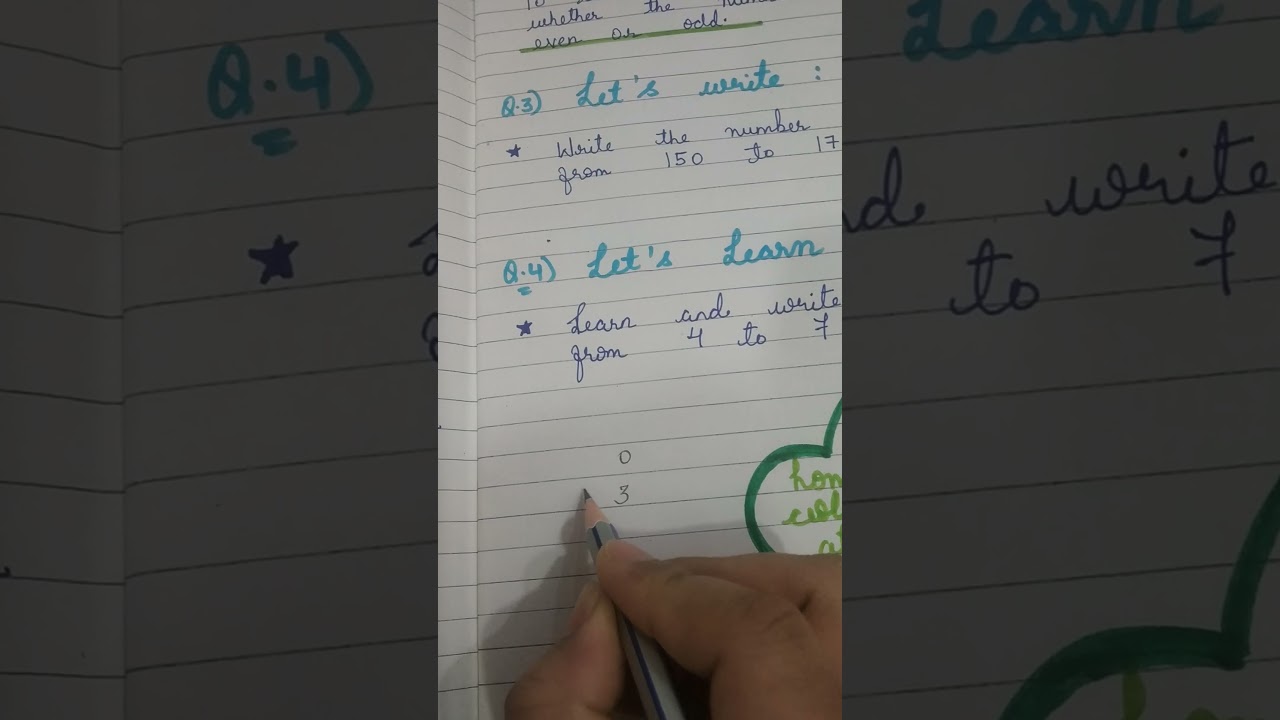 whether the
even or odd.
Q.3) Let's write :
★ Write the number
from 150 to 17
Q.4) Let's Learn
★ Learn and write
from 4 to 7
0
3
Q.4)
Learn
write
to 7